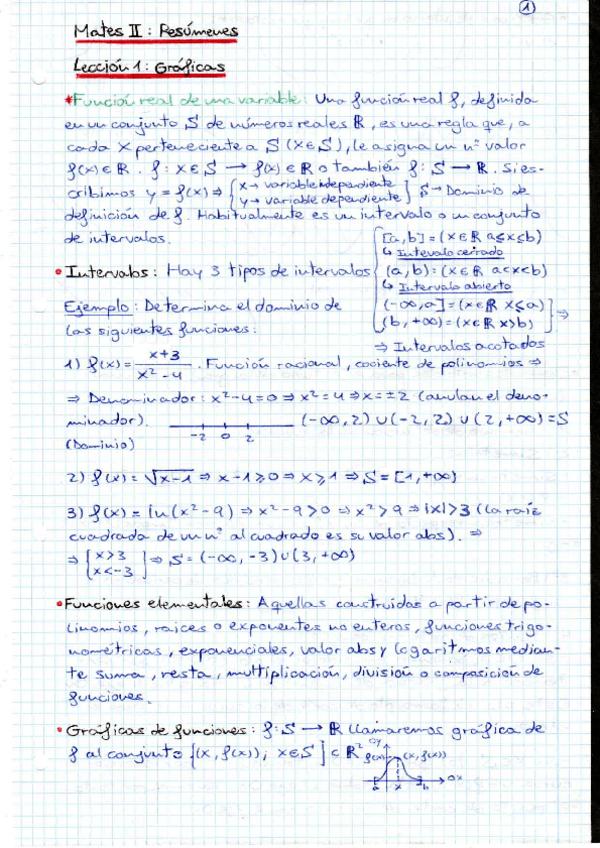 1
Mates II: Resúmenes
Lección 1: Gráficas
*Función real de una variable: Una función real f, definida
en un conjunto S de números reales ℝ, es una regla que, a
cada x perteneciente a S (x∈S), le asigna un nº valor
f(x)∈ℝ. f: x∈S → f(x)∈ℝ o también f: S → ℝ. Si es-
cribimos y = f(x) ⇒ {x → variable independiente
y → variable dependiente} S → Dominio de
definición de f. Habitualmente es un intervalo o un conjunto
de intervalos.
• Intervalos: Hay 3 tipos de intervalos
[a,b] = (x∈ℝ a≤x≤b)
↳ Intervalo cerrado
(a,b) = (x∈ℝ a<x<b)
↳ Intervalo abierto
(-∞,a] = (x∈ℝ x≤a)
(b,+∞) = (x∈ℝ x>b) ⇒
⇒ Intervalos acotados
Ejemplo: Determina el dominio de
las siguientes funciones:
1) f(x) = x+3 / x²-4. Función racional, cociente de polinomios ⇒
⇒ Denominador: x²-4=0 ⇒ x²=4 ⇒ x=±2 (anulan el deno-
minador). (-∞,2) ∪ (-2,2) ∪ (2,+∞) = S
(Dominio) -2 0 2
2) f(x) = √x-1 ⇒ x-1≥0 ⇒ x≥1 ⇒ S = [1,+∞)
3) f(x) = ln(x²-9) ⇒ x²-9>0 ⇒ x²>9 ⇒ |x|>3 (La raíz
cuadrada de un nº al cuadrado es su valor abs). ⇒
⇒ {x>3
x<-3} ⇒ S = (-∞,-3)∪(3,+∞)
• Funciones elementales: Aquellas construidas a partir de po-
linomios, raíces o exponentes no enteros, funciones trigo-
nométricas, exponenciales, valor abs y logaritmos median-
te suma, resta, multiplicación, división o composición de
funciones.
• Gráficas de funciones: f: S → ℝ llamaremos gráfica de
f al conjunto {(x, f(x)); x∈S} ⊂ ℝ²
oy
f(x) (x,f(x))
a x b ox